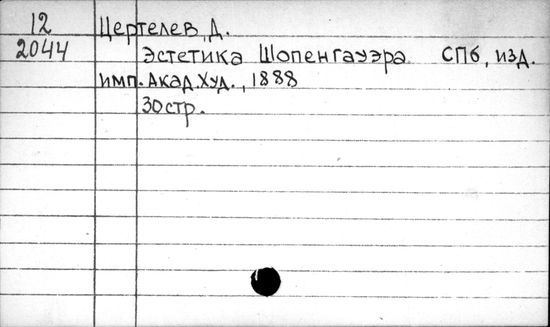 12 Цертелев, Д.
2044 Эстетика Шопенгауэра СПб, изд.
имп. Акад. Худ., 1888
30 стр.